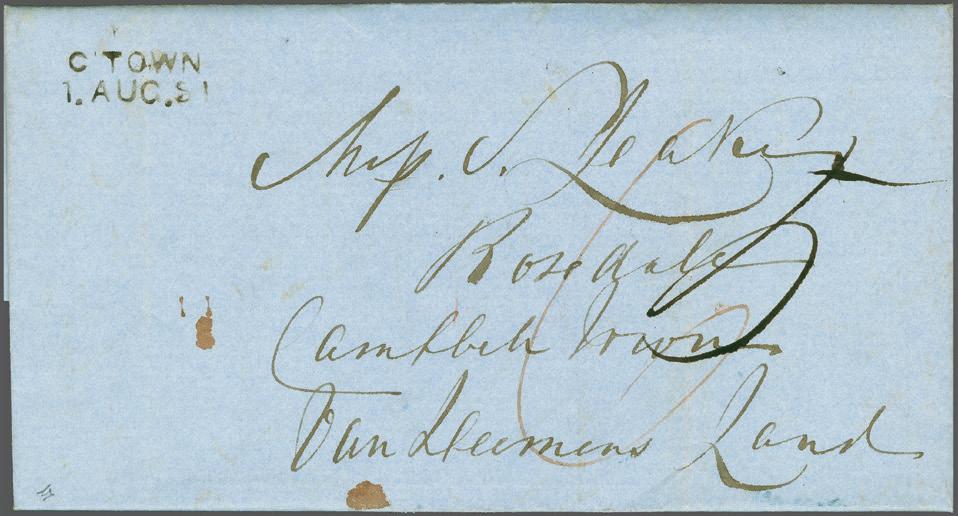 C'TOWN
1. AUG. 51
Miss. S. Leake
Rosedale
Campbell Town
Van Diemens Land
5
6